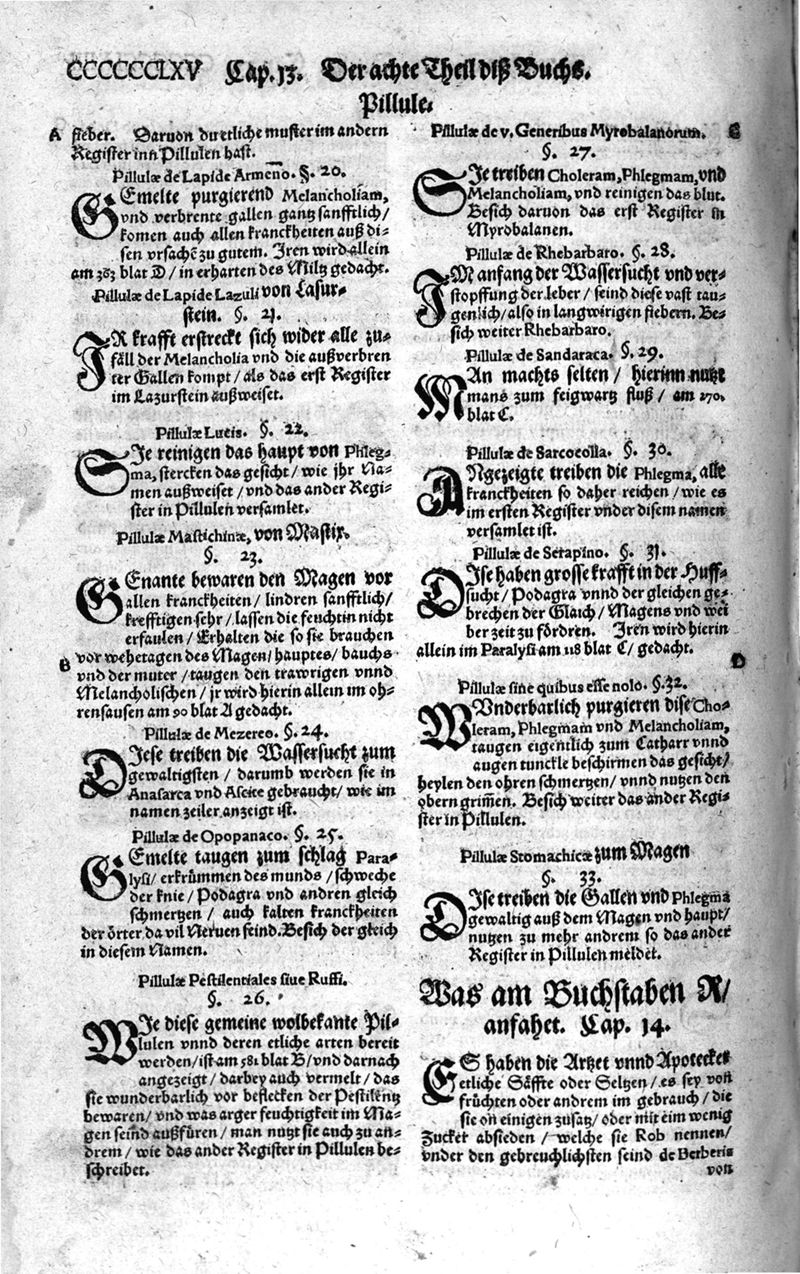 CCCCCCLXV Cap. 13. Der achte Theil diß Buchs.
Pillule.
A fieber. Daruon du etliche muster im andern
Register inn Pillulen hast.
Pillulæ de Lapide Armeno. §. 20.
GEmelte purgierend Melancholiam,
vnd verbrente gallen gantz sanfftlich/
komen auch allen kranckheiten auß di-
sen vrsachẽ zu gutem. Jren wird allein
am 363 blat D/ in erharten des Miltz gedacht.
Pillulæ de Lapide Lazuli von Lasur-
stein. §. 21.
JR krafft erstreckt sich wider alle zu-
fäll der Melancholia vnd die außverbren
ter Gallen kompt/ als das erst Register
im Lazurstein außweiset.
Pillulæ Lucis. §. 22.
SJe reinigen das haupt von Phleg-
ma, stercken das gesicht/ wie jhr Na-
men außweiset/ vnd das ander Regi-
ster in Pillulen versamlet.
Pillulæ Mastichinæ, von Mastix.
§. 23.
GEnante bewaren den Magen vor
allen kranckheiten/ lindren sanfftlich/
krefftigen sehr/ lassen die feuchtin nicht
erfaulen/ Erhalten die so sie brauchen
B vor wehetagen des Magen/ hauptes/ bauchs
vnd der muter/ taugen den trawrigen vnnd
Melancholischen/ jr wird hierin allein im oh-
rensausen am 90 blat A gedacht.
Pillulæ de Mezereo. §. 24.
DJese treiben die Wassersucht zum
gewaltigsten/ darumb werden sie in
Anasarca vnd Ascite gebraucht/ wie im
namen zeiler anzeigt ist.
Pillulæ de Opopanaco. §. 25.
GEmelte taugen zum schlag Para-
lysi/ erkrümmen des munds/ schweche
der knie/ Podagra vnd andren gleich
schmertzen/ auch kalten kranckheiten
der örter da vil Neruen seind. Besich der gleich
in diesem Namen.
Pillulæ Pestilentiales siue Ruffi.
§. 26.
WJe diese gemeine wolbekante Pil-
lulen vnnd deren etliche arten bereit
werden/ ist am 581 blat B/ vnd darnach
angezeigt/ darbey auch vermelt/ das
sie wunderbarlich vor beflecken der Pestilentz
bewaren/ vnd was arger feuchtigkeit im Ma-
gen seind außfüren/ man nutzt sie auch zu an-
drem/ wie das ander Register in Pillulen be-
schreibet.
Pillulæ de v. Generibus Myrobalanorum. C
§. 27.
SJe treiben Choleram, Phlegmam, vnd
Melancholiam, vnd reinigen das blut.
Besich daruon das erst Register in
Myrobalanen.
Pillulæ de Rhebarbaro. §. 28.
JM anfang der Wassersucht vnd ver-
stopffung der leber/ seind diese vast tau-
genlich/ also in langwirigen fiebern. Be-
sich weiter Rhebarbaro.
Pillulæ de Sandaraca. §. 29.
MAn machts selten/ hierinn nutzt
mans zum feigwartz fluß/ am 270.
blat C.
Pillulæ de Sarcocolla. §. 30.
ANgezeigte treiben die Phlegma, alle
kranckheiten so daher reichen/ wie es
im ersten Register vnder disem namen
versamlet ist.
Pillulæ de Serapino. §. 31.
DJse haben grosse krafft in der Huff-
sucht/ Podagra vnnd der gleichen ge-
brechen der Glaich/ Magens vnd wei
ber zeit zu fördren. Jren wird hierin
allein im Paralysi am 118 blat C/ gedacht.
D
Pillulæ sine quibus esse nolo. §. 32.
WUnderbarlich purgieren dise Cho-
leram, Phlegmam vnd Melancholiam,
taugen eigentlich zum Catharr vnnd
augen tunckle beschirmen das gesicht/
heylen den ohren schmertzen/ vnnd nutzen den
obern grim̃en. Besich weiter das ander Regi-
ster in Pillulen.
Pillulæ Stomachicæ zum Magen
§. 33.
DJse treiben die Gallen vnd Phlegma
gewaltig auß dem Magen vnd haupt/
nutzen zu mehr andrem so das ander
Register in Pillulen meldet.
Was am Buchstaben R/
anfahet. Cap. 14.
ES haben die Artzet vnnd Apotecker
etliche Säffte oder Seltzen/ es sey von
früchten oder andrem im gebrauch/ die
sie on einigen zusatz/ oder mit eim wenig
Zucker absieden/ welche sie Rob nennen/
vnder den gebreuchlichsten seind de Berberis
von